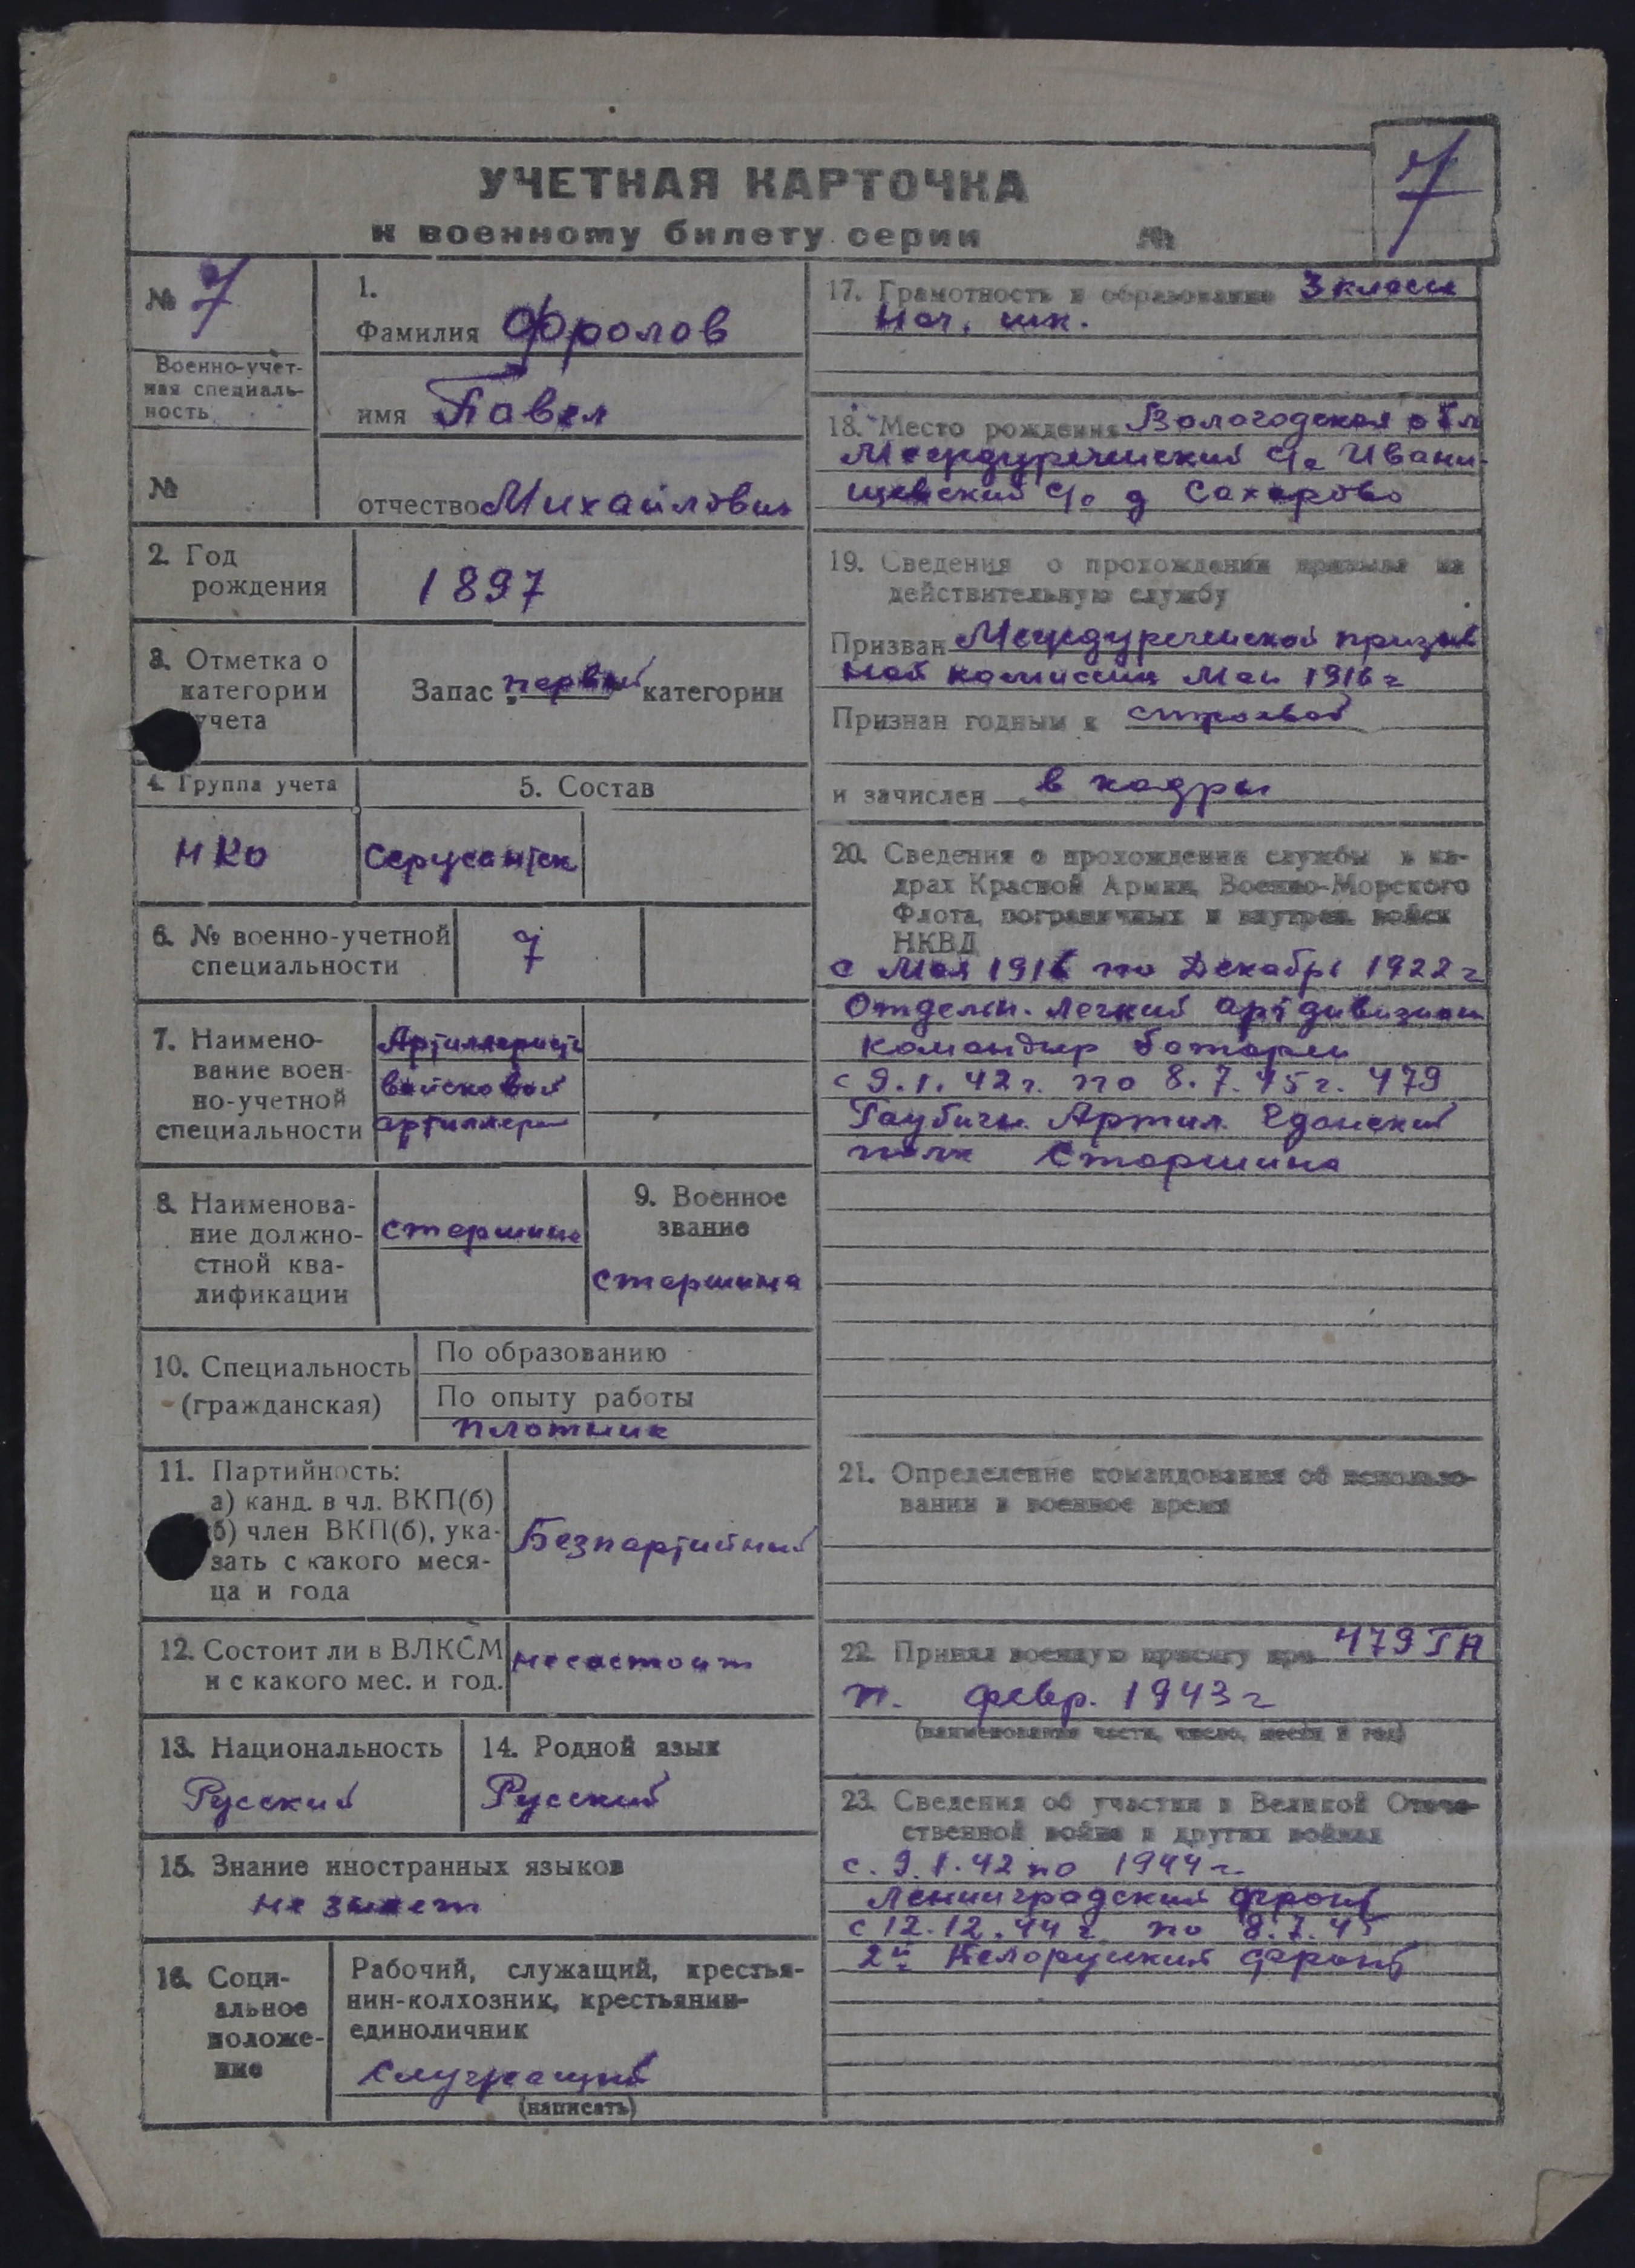 7
УЧЕТНАЯ КАРТОЧКА
к военному билету серии №
№ 7
Военно-учет-
ная специаль-
ность
№
1.
Фамилия Фролов
имя Павел
отчество Михайлович
2. Год
рождения
1897
3. Отметка о
категории
учета
Запас первой категории
4. Группа учета
НКО
5. Состав
Сержантск
6. № военно-учетной
специальности
7
7. Наимено-
вание воен-
но-учетной
специальности
Артиллерист
войсковой
артиллери
8. Наименова-
ние должно-
стной ква-
лификации
старшина
9. Военное
звание
старшина
10. Специальность
(гражданская)
По образованию
По опыту работы
плотник
11. Партийность:
а) канд. в чл. ВКП(б)
б) член ВКП(б), ука-
зать с какого меся-
ца и года
Безпартийный
12. Состоит ли в ВЛКСМ
и с какого мес. и год.
несостоит
13. Национальность
Русский
14. Родной язык
Русский
15. Знание иностранных языков
не знает
16. Соци-
альное
положе-
ние
Рабочий, служащий, крестья-
нин-колхозник, крестьянин-
единоличник
Служащий
(написать)
17. Грамотность и образование 3 класса
Нач. шк.
18. Место рождения Вологодская обл
Междуреченский Ивани-
щевский с/с д Сахарово
19. Сведения о прохождении призыва на
действительную службу
Призван Междуреченской призыв
ной комиссии Маи 1916 г
Признан годным к строевой
и зачислен в кадры
20. Сведения о прохождении службы в ка-
драх Красной Армии, Военно-Морского
Флота, пограничных и внутрен. войск
НКВД
с Мая 1916 по Декабрь 1922 г
Отдельн. легкий артдивизион
командир батареи
с 9.1.42 г. по 8.7.45 г. 479
Гаубичн. Артил. Гданский
полк Старшина
21. Определение командования об использо-
вании в военное время
22. Принял военную присягу при 479 ГА
п. февр. 1943 г
(наименование части, число, месяц и год)
23. Сведения об участии в Великой Отече-
ственной войне и других войнах
с. 9.1.42 по 1944 г.
Ленинградский фронт
с 12.12.44 г по 8.7.45
2й Белоруцкий фронт